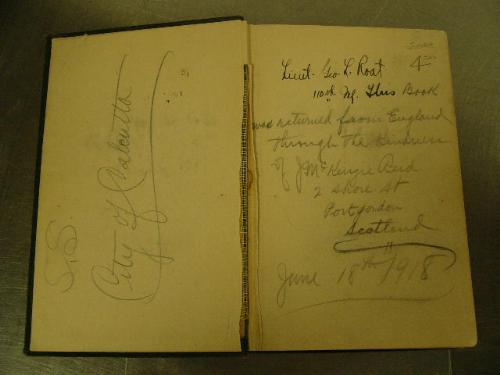 S.S
City of Calcutta
4
Lieut. Geo L. Roat
110th Inf. This Book
was returned from England
through the kindness
of J McKenzie Reid
2 Shore St
Portgordon
Scotland
June 18th 1918